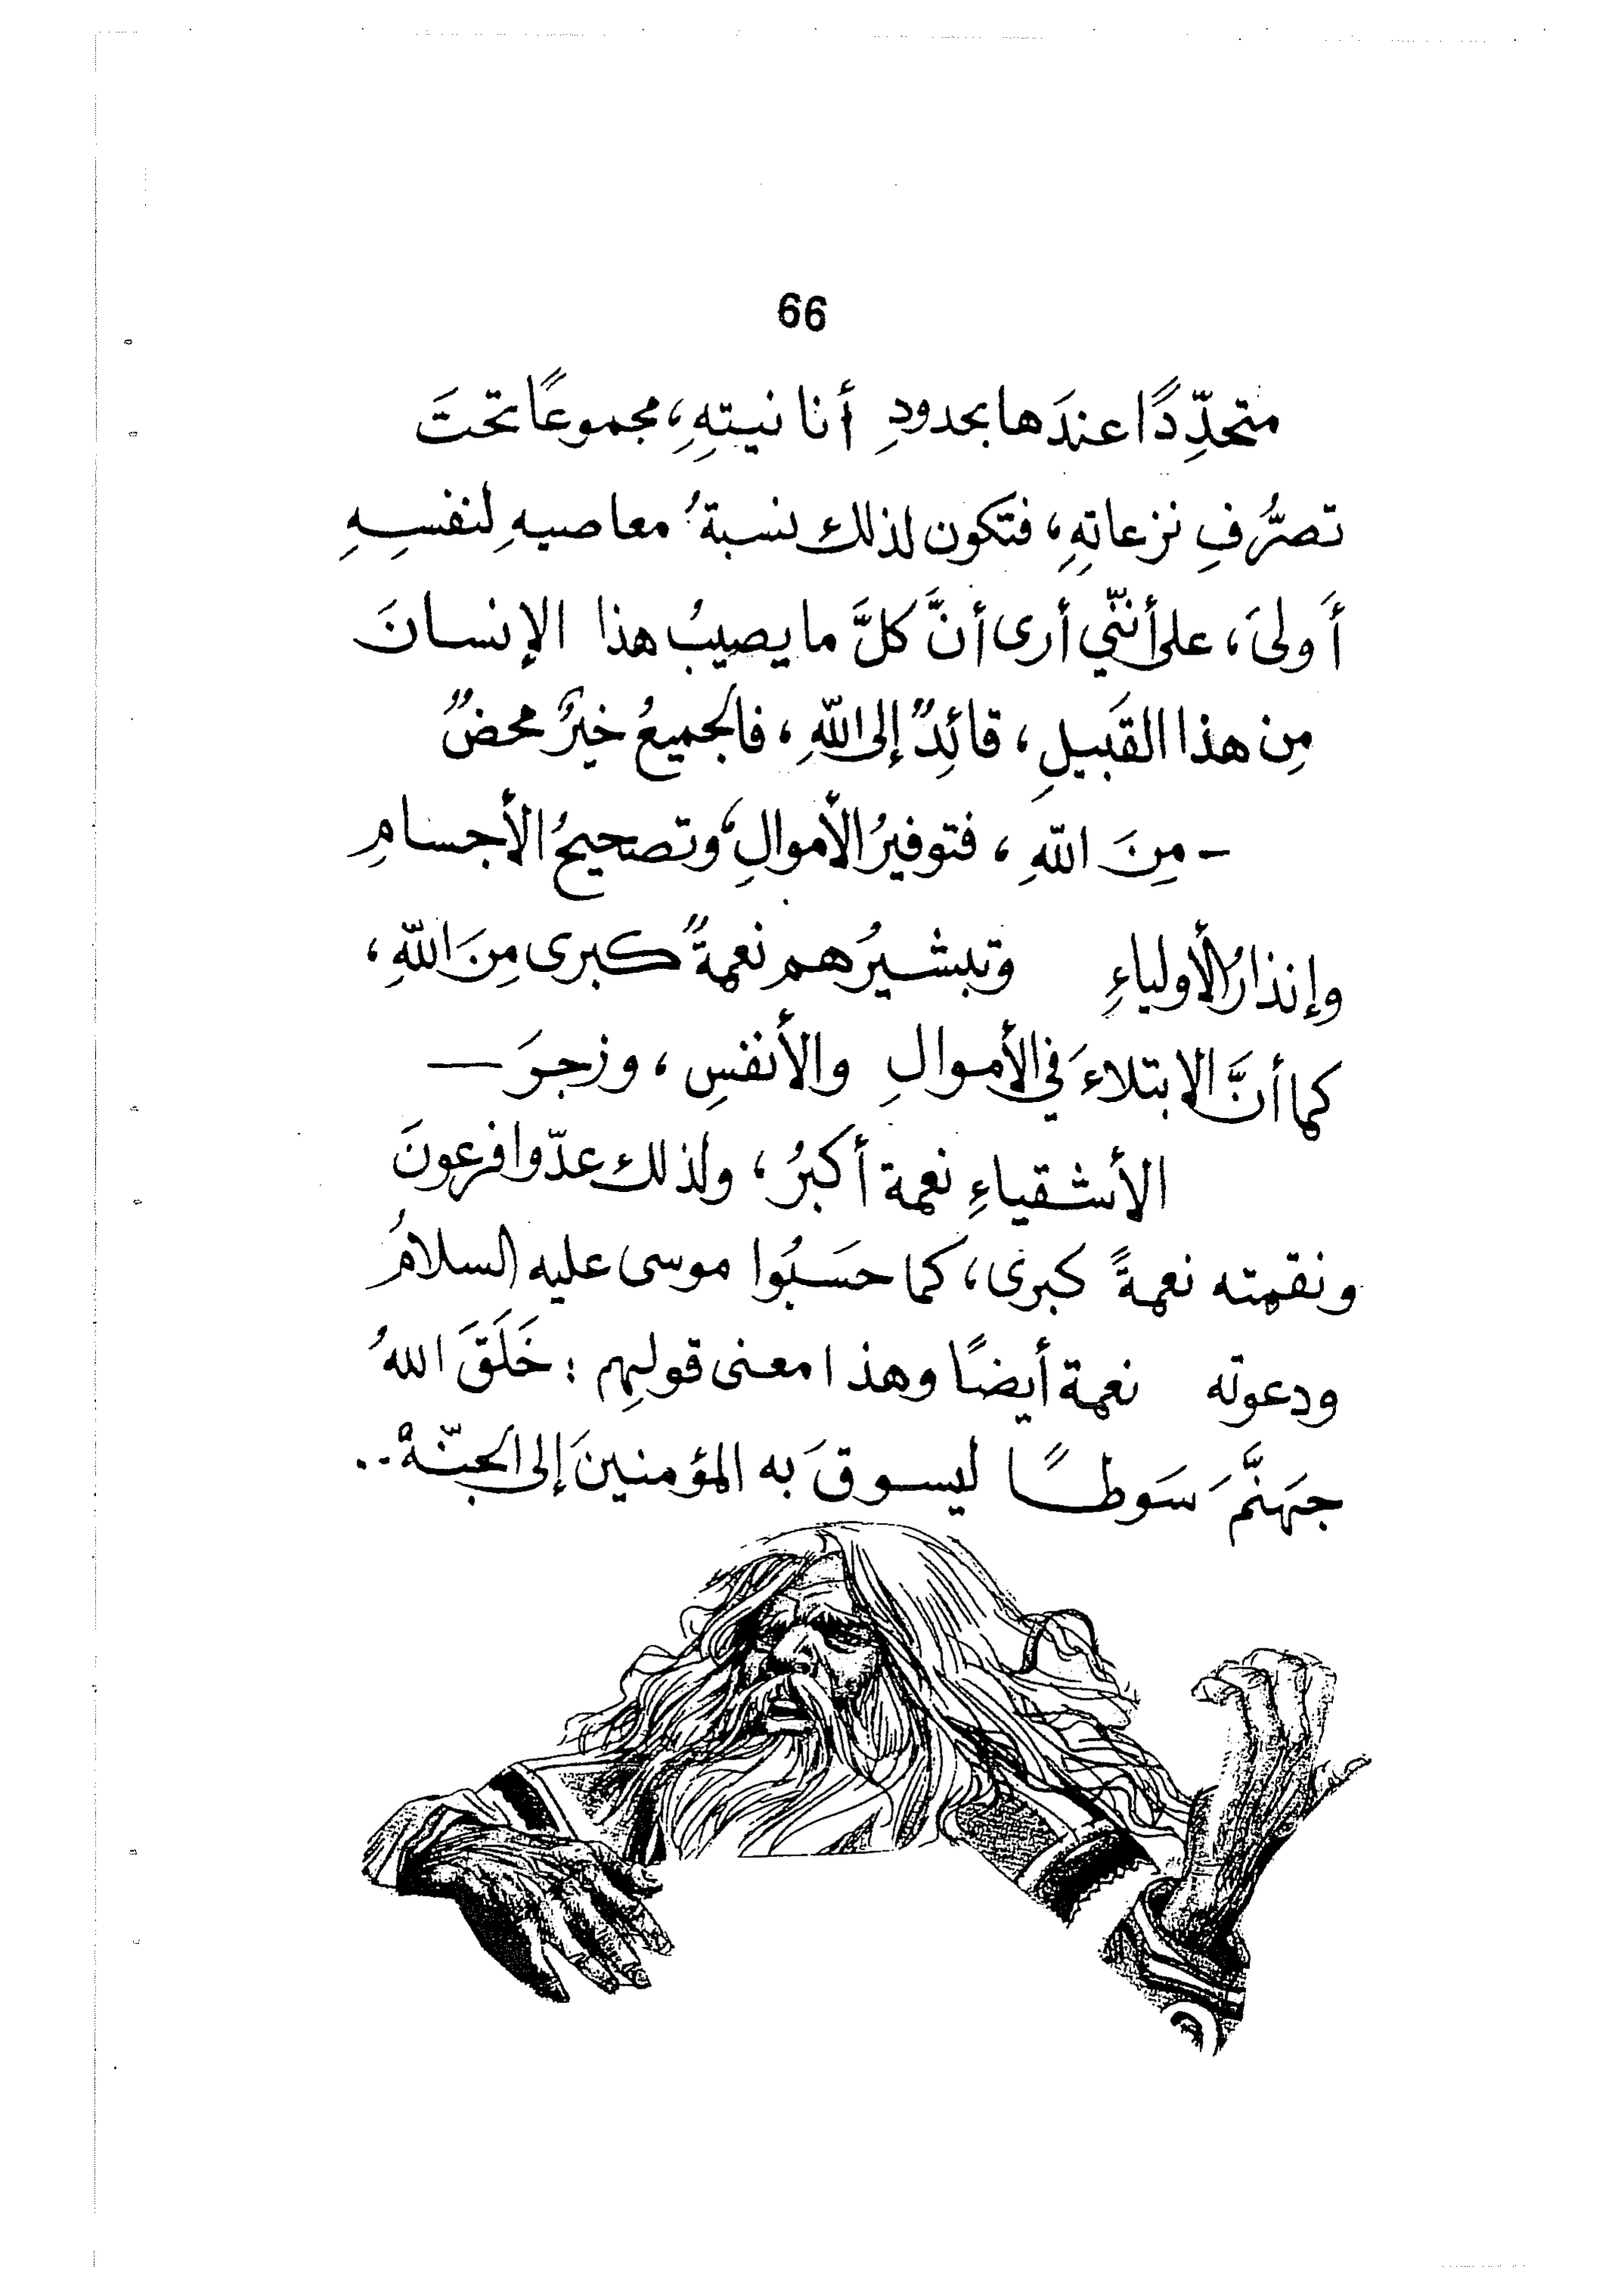 66
متحدِّدًا عندَها بحدودِ أنانيتهِ، مجموعًا تحتَ
تصرُّفِ نزعاتهِ، فتكون لذلك نسبةُ معاصيهِ لنفسِهِ
أَولىَ، على أنّني أرى أنَّ كلَّ ما يصيبُ هذا الإنسانَ
مِن هذا القَبيلِ، قائدٌ إلى اللّهِ، فالجميعُ خيرٌ محضٌ
- مِنَ اللّهِ، فتوفيرُ الأموالِ، وتصحيحُ الأجسامِ
وإنذارُ الأولياءِ وتبشيرُهم نعمةٌ كبرى مِنَ اللّهِ،
كما أنَّ الابتلاءَ في الأموالِ والأنفسِ، وزجرَ —
الأشقياءِ نعمة أكبرُ، ولذلك عدّوا فرعونَ
ونقمته نعمةً كبرى، كما حسَبُوا موسى عليه السلامُ
ودعوته نعمة أيضًا وهذا معنى قولهِم : خَلَقَ اللهُ
جهَنَّمَ سَوطًا ليسوقَ به المؤمنينَ إلى الجنّةْ..